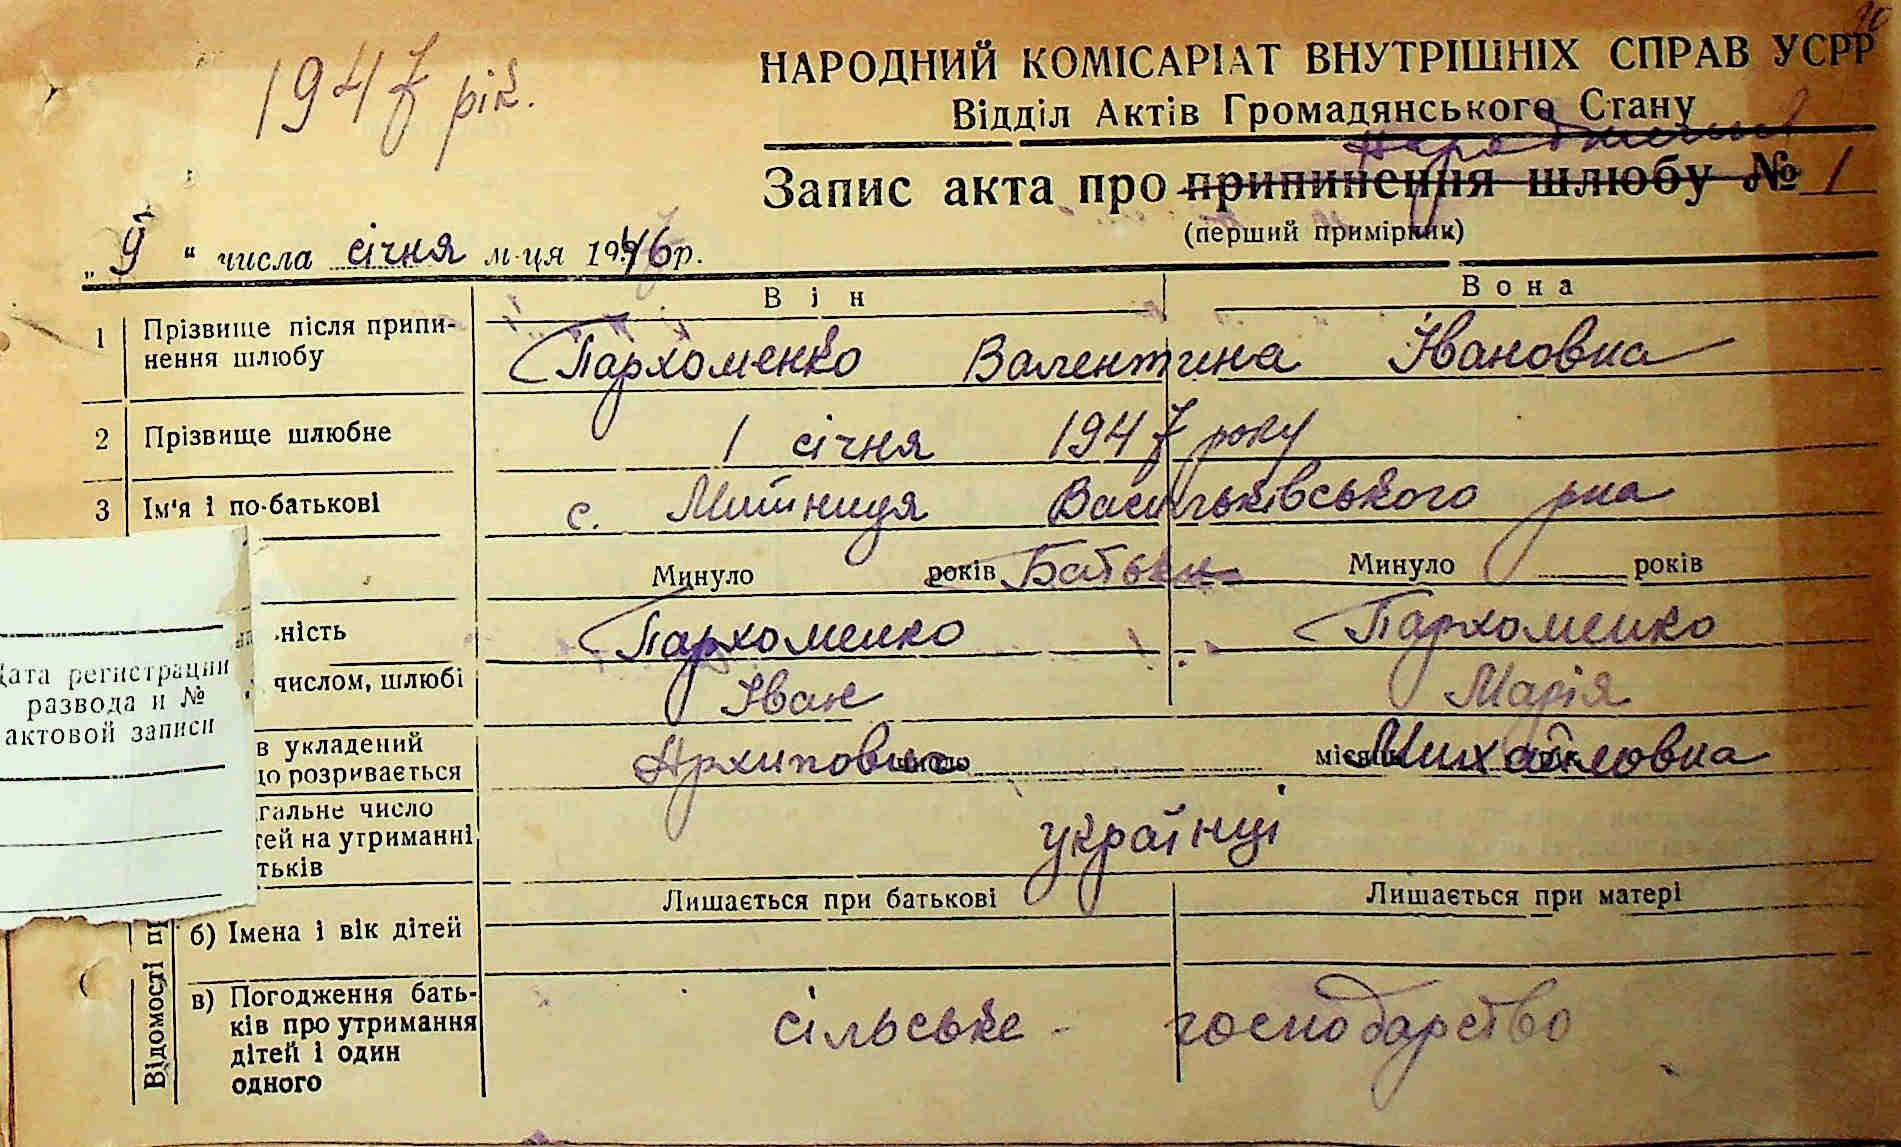 1947 рік.
НАРОДНИЙ КОМІСАРІАТ ВНУТРІШНІХ СПРАВ УСРР
Відділ Актів Громадянського Стану
народження
Запис акта про припинення шлюбу № 1
(перший примірник)
„ 9 “ числа січня м-ця 1946 р.
Він Вона
1 Прізвище після припи-
нення шлюбу
Пархоменко Валентина Івановна
2 Прізвище шлюбне 1 січня 1947 року
3 Ім'я і по-батькові с. Митниця Васильківського р-на
Минуло років Батьки Минуло років
ність Пархоменко Пархоменко
числом, шлюбі Іван Марія
в укладений
що розривається
Архипович число місяць Михайловна
гальне число
тей на утриманні
тьків
українці
Лишається при батькові Лишається при матері
б) Імена і вік дітей
в) Погодження бать-
ків про утримання
дітей і один
одного
сільське - господарство
Відомості
Дата регистрации
развода и №
актовой записи